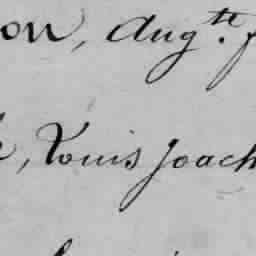 on, Aug.te f
, Louis Joach